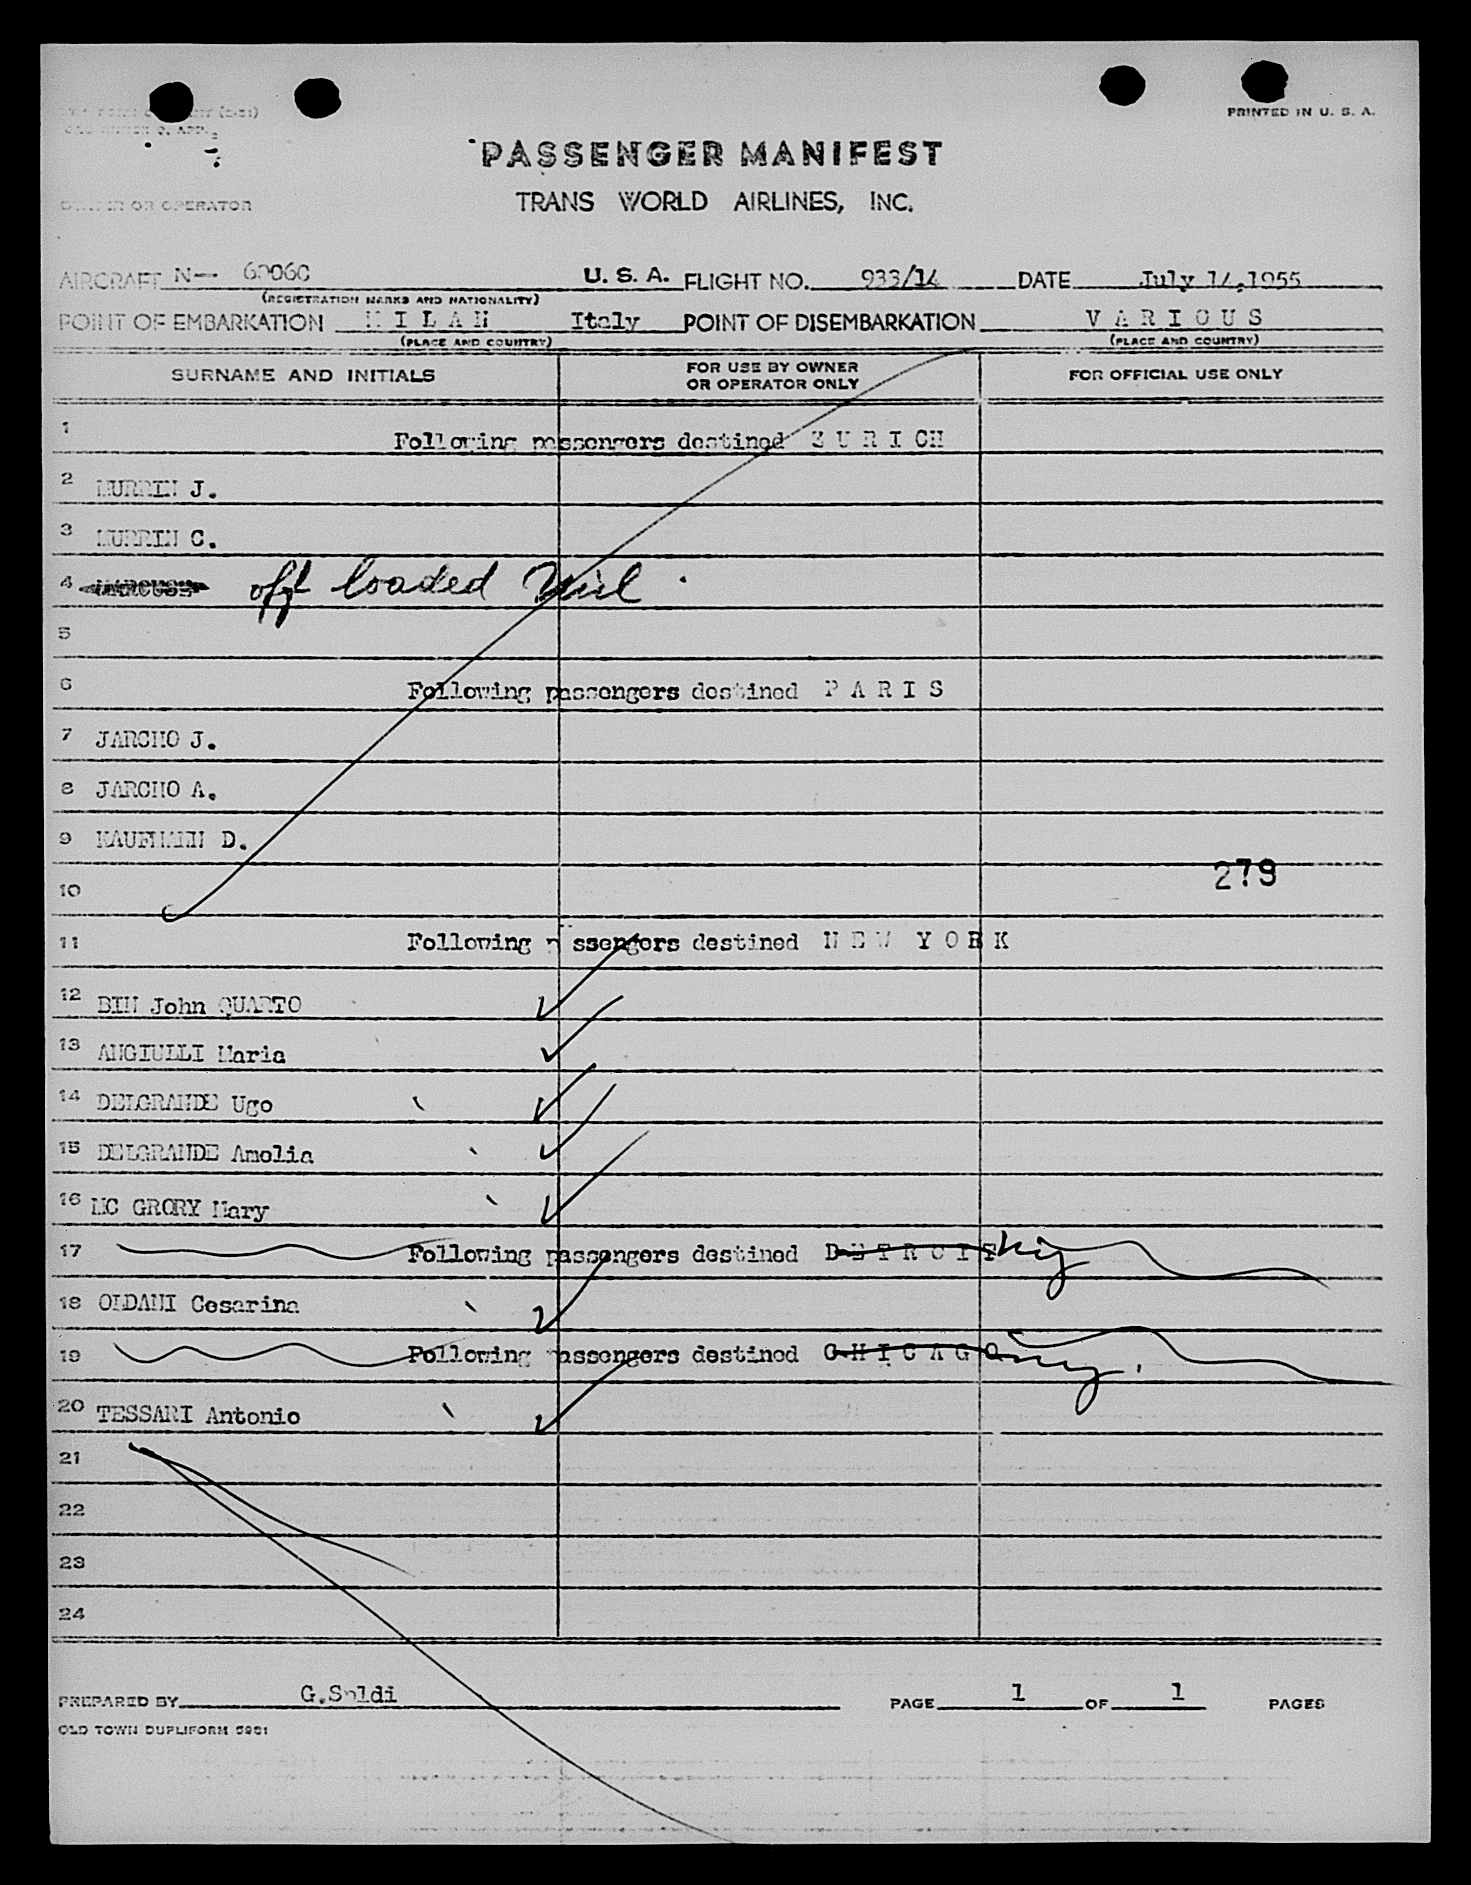 PRINTED IN U. S. A.
PASSENGER MANIFEST
TRANS WORLD AIRLINES, INC.
OWNER OR OPERATOR
AIRCRAFT N— 6006C U. S. A. FLIGHT NO. 933/14 DATE July 14,1955
(REGISTRATION MARKS AND NATIONALITY)
POINT OF EMBARKATION M I L A N Italy POINT OF DISEMBARKATION V A R I O U S
(PLACE AND COUNTRY) (PLACE AND COUNTRY)
SURNAME AND INITIALS FOR USE BY OWNER OR OPERATOR ONLY FOR OFFICIAL USE ONLY
1 Following passengers destined Z U R I CH
2 MURRIN J.
3 MURRIN C.
4 MARCUSS off loaded Mil.
5
6 Following passengers destined P A R I S
7 JARCHO J.
8 JARCHO A.
9 KAUFMANN D.
10
279
11 Following passengers destined N E W Y O R K
12 BIN John QUARTO
13 ANGIULLI Maria
14 DELGRANDE Ugo
15 DELGRANDE Amelia
16 MC GRORY Mary
17 Following passengers destined D E T R O I T ny
18 OLDANI Cesarina
19 Following passengers destined C H I C A G O ny.
20 TESSARI Antonio
21
22
23
24
PREPARED BY G.Soldi PAGE 1 OF 1 PAGES
OLD TOWN DUPLIFORM 5951